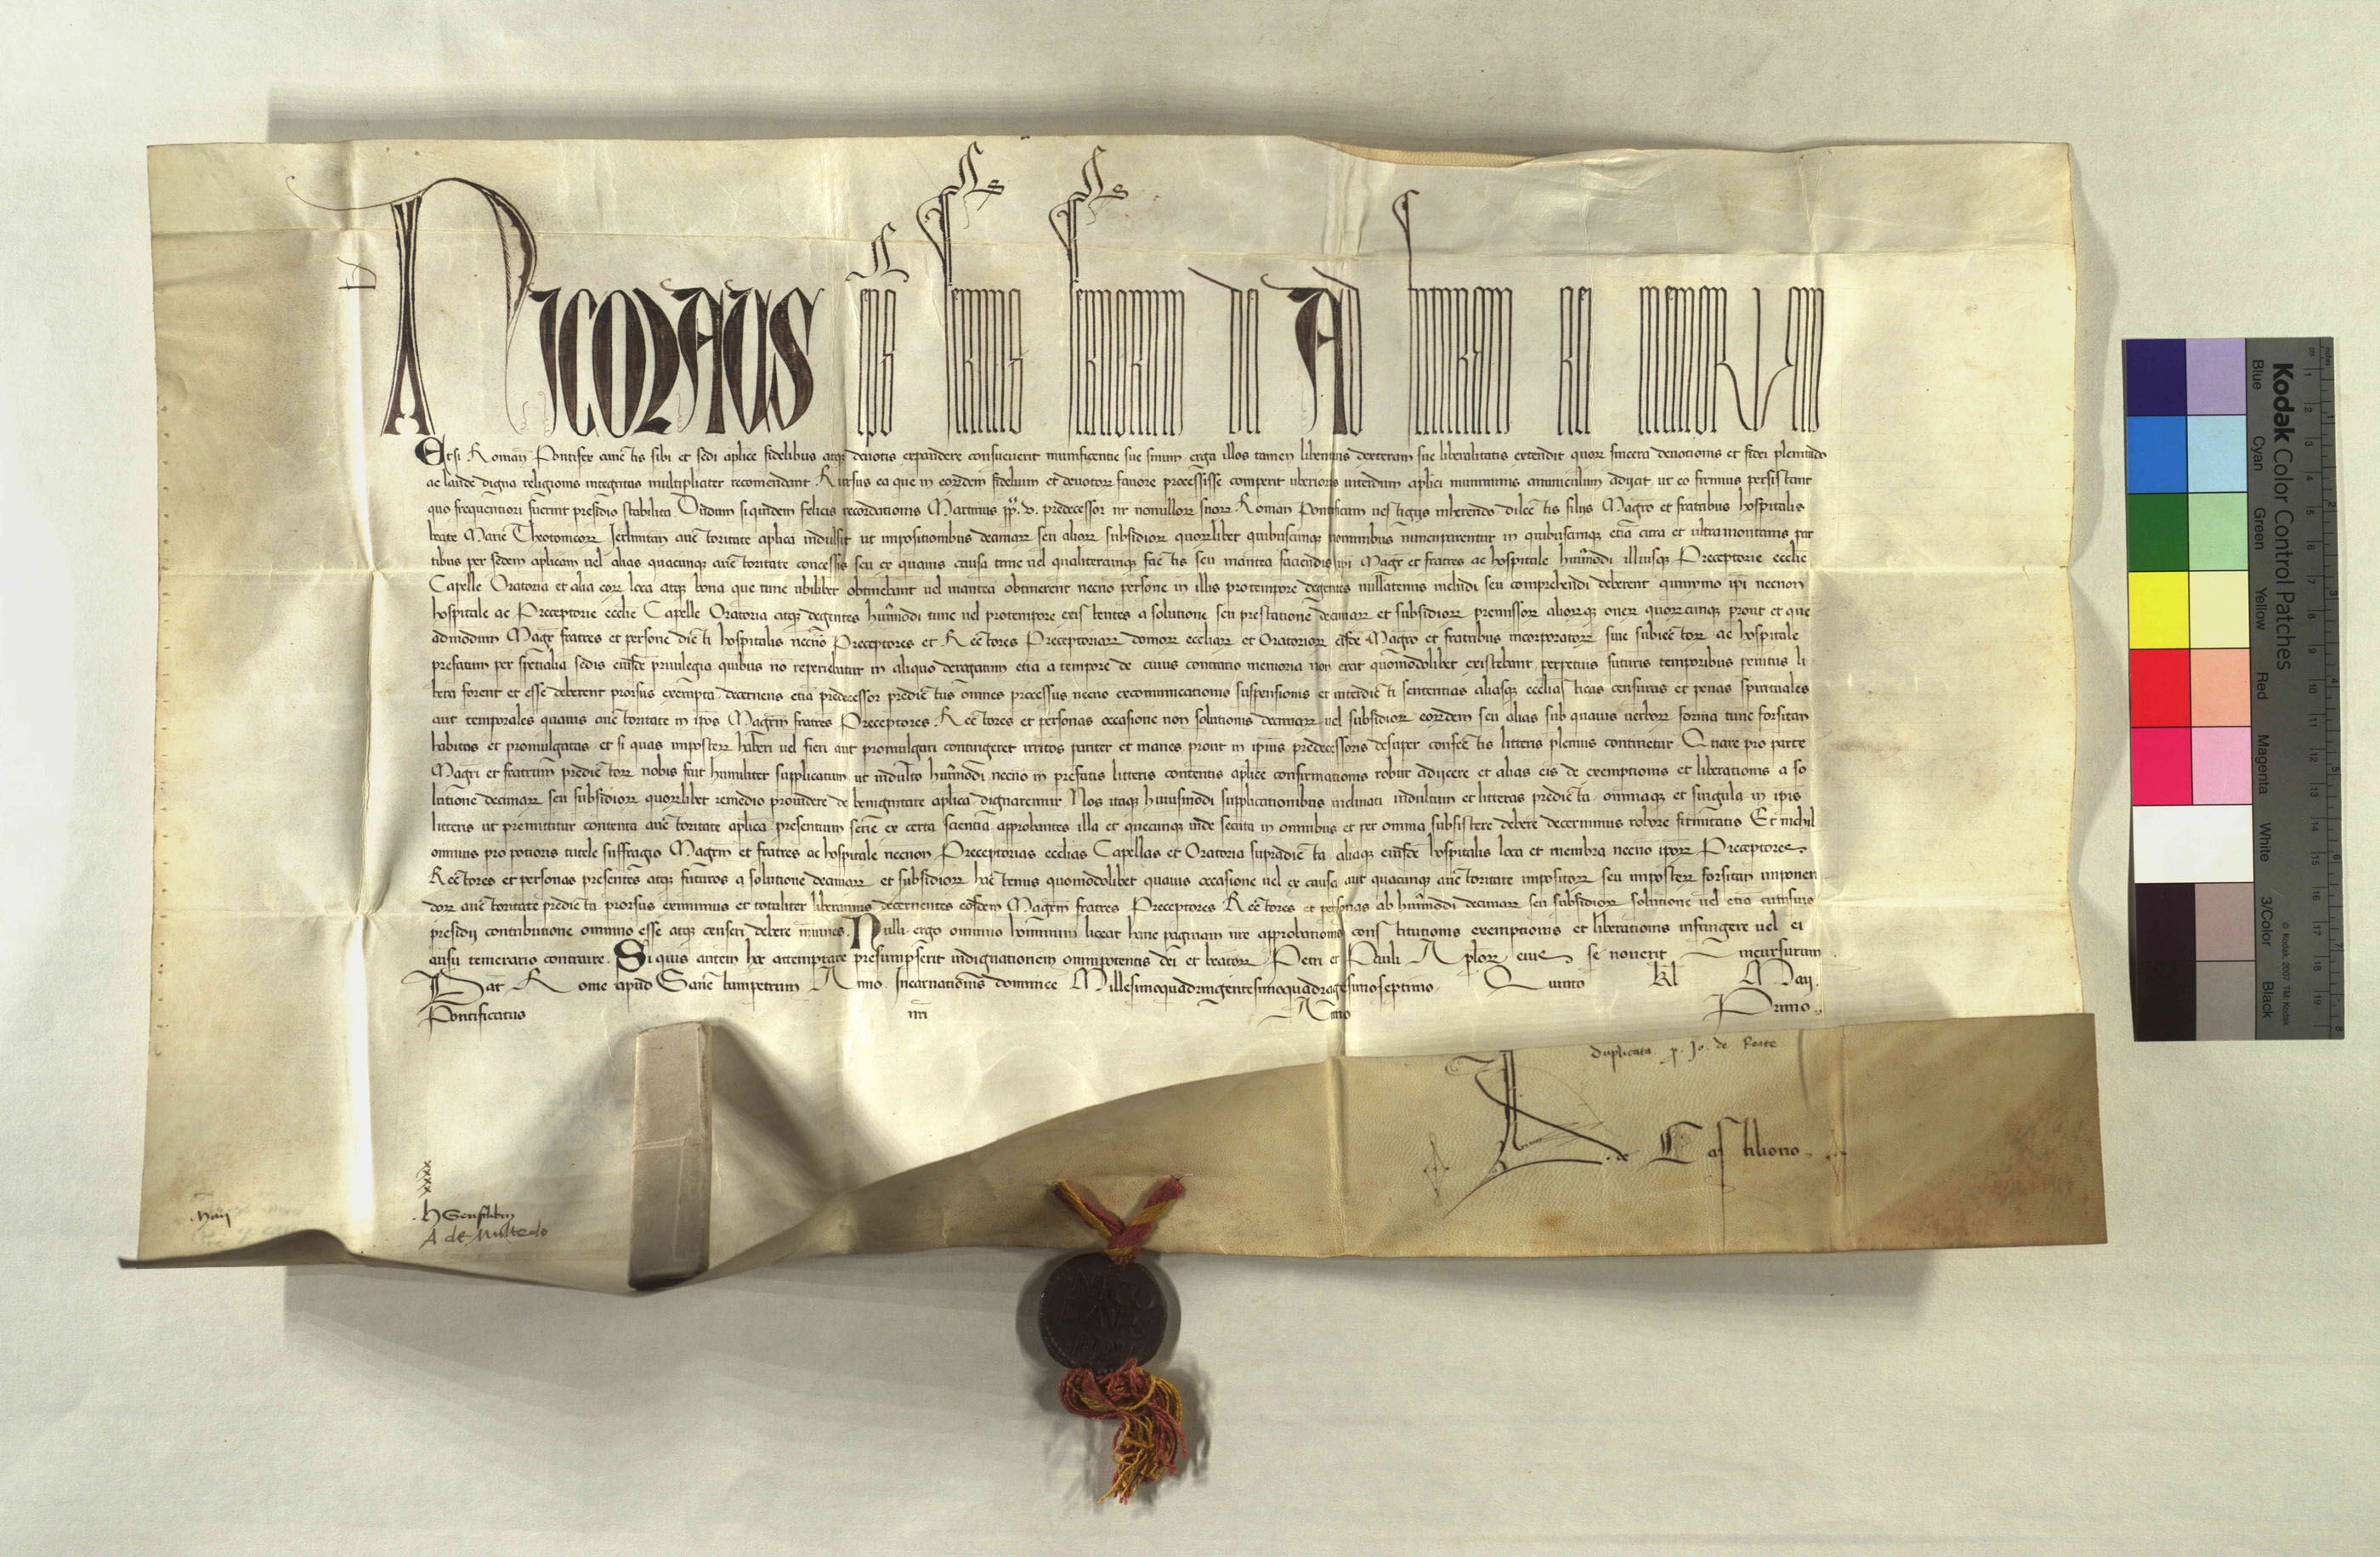 NICOLAUS eps seruus seruorum dei Ad futuram rei memoriam
Etsi Roman Pontifex cunctis sibi et sedi aplice fidelibus atq deuotis expandere consueuerit munificentie sue sinum erga illos tamen libentius dexteram sue liberalitatis extendit quorr sincera deuotionis et fidei plenitudo
ac laude digna religionis integritas multipliciter recomendant Rursus ea que in eordem fidelium et deuotorr fauore processisse comperit uberioris interdum aplici muniminis adijcit ut eo firmius persistant
quo frequentiori fuerint presidio stabilita Dudum siquidem felicis recordationis Martinus pp v predecessor nr nonullorr suorr Roman Pontificum uestigijs inherendo dilectis filijs Magro et fratribus hospitalis
beate Marie Theotonicorr Jerlimitan auctoritate aplica indulsit ut impositionibus decimarr seu aliorr subsidiorr quorrlibet quibuscunq nominibus nuncuparentur in quibuscunq etia citra et ultramontanis par
tibus per sedem aplicam uel alias quacunq auctoritate concessis seu ex quauis causa tunc uel qualitercunq factis seu inantea faciendis ipi Magr et fratres ac hospitale humodi illiusq Preceptorie ecclie
Capelle Oratoria et alia eorr loca atq bona que tunc ubilibet obtinebant uel inantea obtinerent necno persone in illis protempore degentes nullatenus includi seu comprehendi deberent quinymo ipi necnon
hospitale ac Preceptorie ecclie Capelle Oratoria atq degentes humodi tunc uel protempore existentes a solutione seu prestatione decimarr et subsidiorr premissorr aliorrq onerr quorrcunq prout et que
admodum Magr fratres et persone dicti hospitalis necno Preceptores et Rectores Preceptoriarr domorr eccliarr et Oratoriorr eisde Magro et fratribus incorporatorr siue subiectorr ac hospitale
prefatum per spetialia sedis eiusde priuilegia quibus no reperiebatur in aliquo derogatum etia a tempore de cuius contrario memoria non erat quomodolibet existebant perpetuis futuris temporibus penitus li
bera forent et esse deberent prorsus exempta decernens etia predecessor predictus omnes processus necno excomunicationis suspensionis et interdicti sententias aliasq ecclasticas censuras et penas spirituales
aut temporales quauis auctoritate in ipos Magrm fratres Preceptores Rectores et personas occasione non solutionis decimarr uel subsidiorr eordem seu alias sub quauis uerborr forma tunc forsitan
habitas et promulgatas et si quas imposterr haberi uel fieri aut promulgari contingeret irritos pariter et inanes prout in ipius predecessoris desuper confectis litteris plenius continetur Quare pro parte
Magri et fratrum predictorr nobis fuit humiliter supplicatum ut indulto humodi necno in prefatis litteris contentis aplice confirmationis robur adijcere et alias eis de exemptionis et liberationis a so
lutione decimarr seu subsidiorr quorrlibet remedio prouidere de benignitate aplica dignaremur Nos itaq huiusmodi supplicationibus inclinati indultum et litteras predicta omniaq et singula in ipis
litteris ut premittitur contenta auctoritate aplica presentium serie ex certa scientia approbantes illa et quecunq inde secuta in omnibus et per omnia subsistere debere decernimus robore firmitatis Et nichil
ominus pro potioris tutele suffragio Magrm et fratres ac hospitale necnon Preceptorias ecclias Capellas et Oratoria supradicta aliaq eiusde hospitalis loca et membra necno iporr Preceptores
Rectores et personas presentes atq futuros a solutione decimarr et subsidiorr hactenus quomodolibet quauis occasione uel ex causa aut quacunq auctoritate impositorr seu imposterr forsitan imponen
dorr auctoritate predicta prorsus eximimus et totaliter liberamus decernentes eosdem Magrm fratres Preceptores Rectores et personas ab humodi decimarr seu subsidiorr solutione uel etia cuiusuis
presidij contributione omnino esse atq censeri debere immunes. Nulli ergo omnino hominum liceat hanc paginam nre approbationis constitutionis exemptionis et liberationis infringere uel ei
ausu temerario contraire. Si quis autem hoc attemptare presumpserit indignationem omnipotentis dei et beatorr Petri et Pauli Aplorr eius se nouerit incursurum
Dat Rome apud Sanctumpetrum Anno Incarnationis dominice Millesimoquadringentesimoquadragesimoseptimo. Quinto kl Maij.
Pontificatus nri Anno Primo.
duplicata p. Jo. de Reate
de Castiliono.
Maij
h Sensibm
A de Multedo
NICO
LAVS
Kodak Color Control Patches
Blue Cyan Green Yellow Red Magenta White 3/Color Black
© Kodak, 2007 TM: Kodak
cm 1 2 3 4 5 6 7 8 9 10 11 12 13 14 15 16 17 18 19